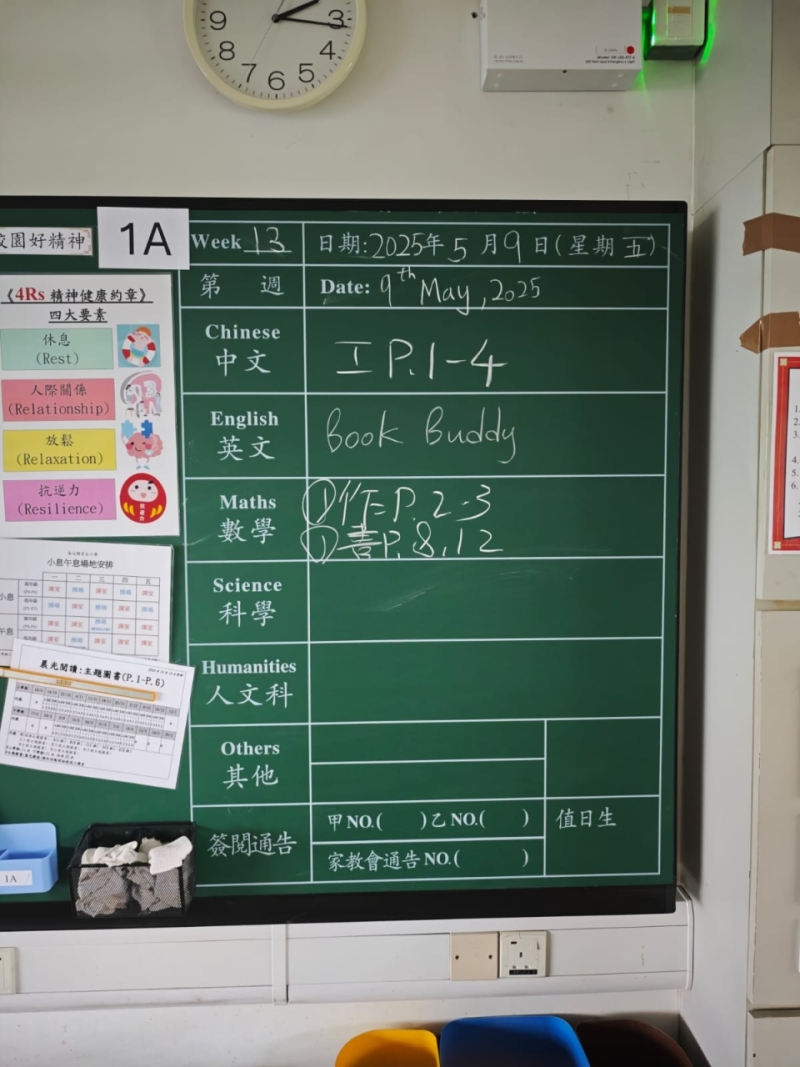 9 3
8 4
7 6 5
校園好精神
1A
Week 13
日期:2025年5月9日(星期五)
第 週
Date: 9th May, 2025
《4Rs 精神健康約章》
四大要素
休息
(Rest)
人際關係
(Relationship)
放鬆
(Relaxation)
抗逆力
(Resilience)
抗逆力
Chinese
中文
工 P.1-4
English
英文
Book Buddy
Maths
數學
①作 P.2-3
①書P.8,12
Science
科學
Humanities
人文科
Others
其他
簽閱通告
甲NO.( )乙NO.( )
家教會通告NO.( )
值日生
小息午息場地安排
一 二 三 四 五
小息
午息
晨光閱讀:主題圖書(P.1-P.6)
1A
1.
2.
3.
4.
5.
6.